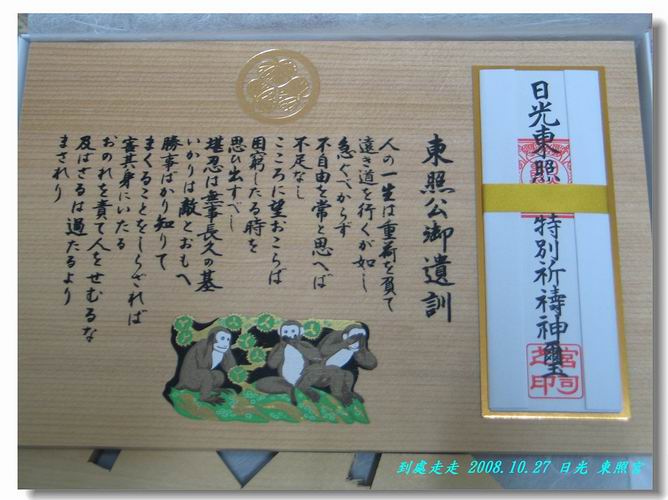 東照公御遺訓
人の一生は重荷を負て
遠き道を行くが如し
急ぐべからず
不自由を常と思へば
不足なし
こころに望おこらば
困窮したる時を
思ひ出すべし
堪忍は無事長久の基
いかりは敵とおもへ
勝事ばかり知りて
まくることをしらざれば
害其身にいたる
おのれを責て人をせむるな
及ばざるは過たるより
まされり
日光東照 特別祈禱神璽
宮司之印
到處走走 2008.10.27 日光 東照宮